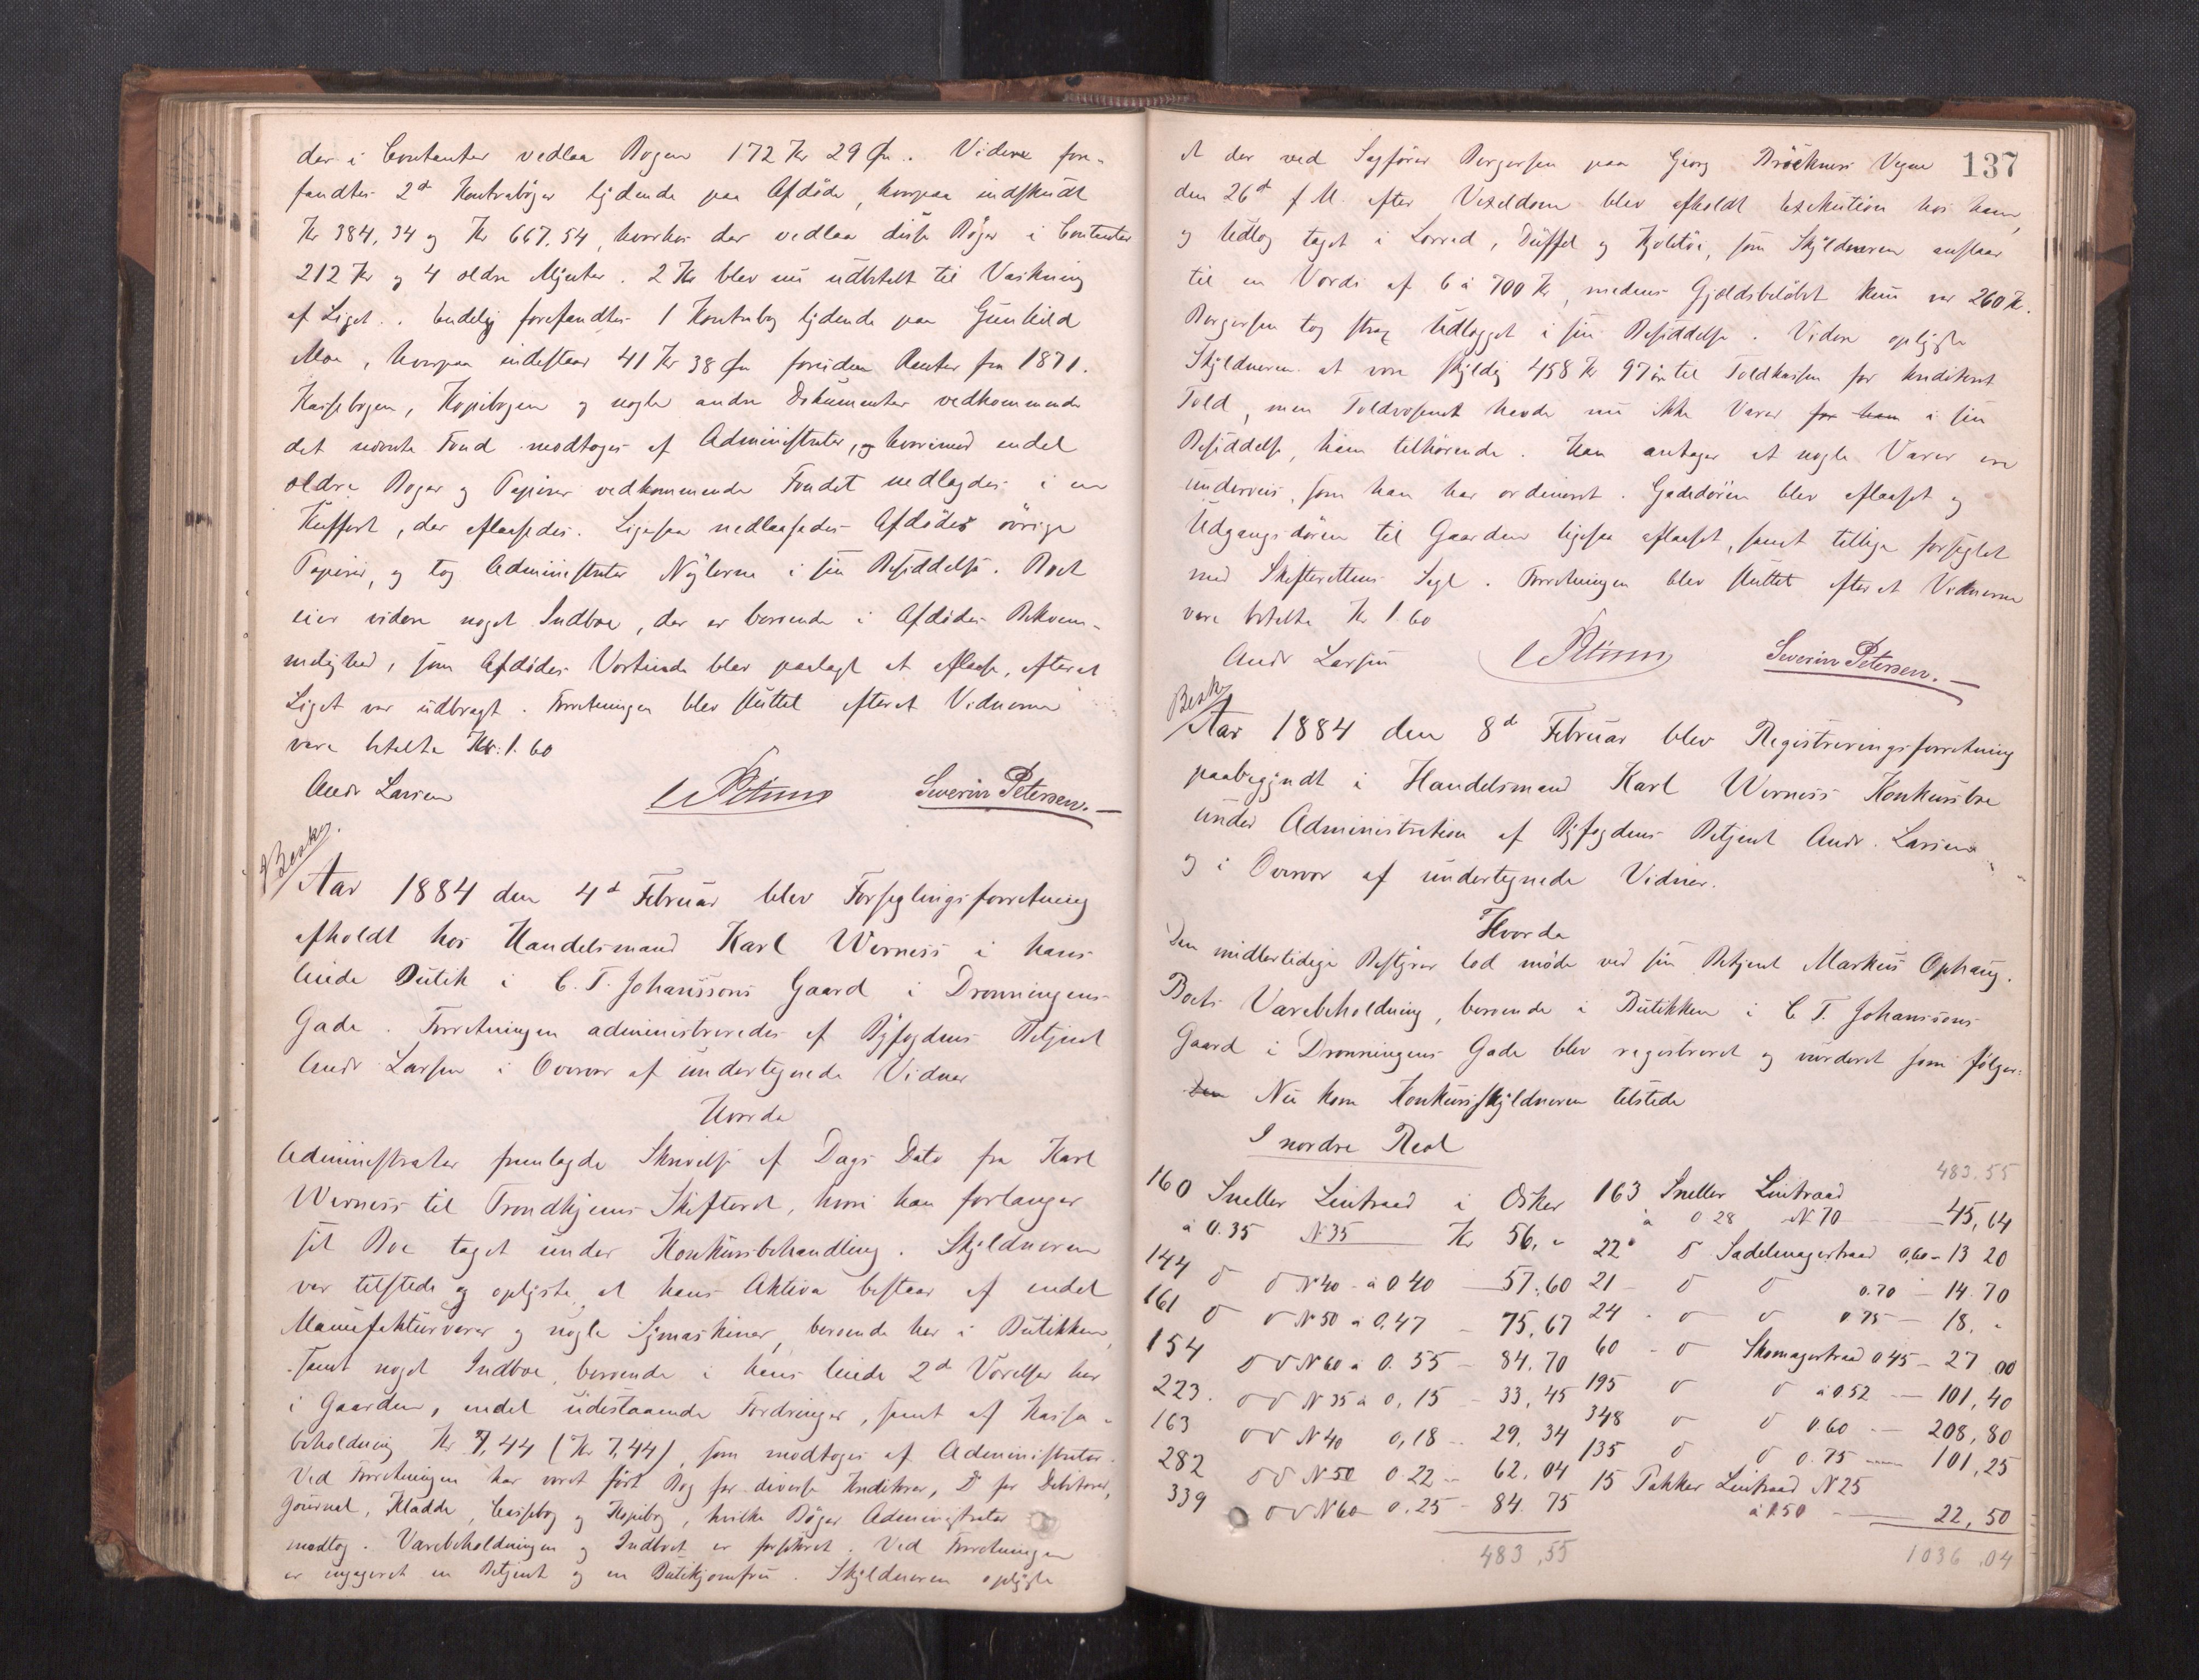 der i Contanter vedlaa Bogen 172 Kr 29 Øre. Videre fore-
fandtes 2de Kontrabøger lydende paa Afdøde, hvorpaa indskudt
Kr 384,34 og Kr 667,54, hvorhos der vedlaa disse Bøger i Contanter
212 Kr og 4 ældre Mynter. 2 Kr blev nu udbetalt til Vaskning
af Liget. Endelig forefandtes 1 Kontrabog lydende paa Gunhild
Moe, hvorpaa indestaar 41 Kr 38 Øre foruden Renter fra 1871.
Kassebogen, Kopibogen og nogle andre Dokumenter vedkommende
det nævnte Fond modtoges af Administrator, og hvorimod endel
ældre Bøger og Papirer vedkommende Fondet nedlagdes i en
Kuffert, der aflaasedes. Ligesaa nedlaasedes Afdødes øvrige
Papirer, og tog Administrator Nøglerne i sin Besiddelse. Boet
eier videre noget Indboe, der er beroende i Afdødes Bekvem-
melighed, som Afdødes Vertinde blev paalagt at aflaase, efterat
Liget var udbragt. Forretningen blev sluttet efterat Vidnerne
vare betalte Kr. 1.60
Andr Larsen Severin Petersen.
Besk.
Aar 1884 den 4de Februar blev Forseglingsforretning
afholdt hos Handelsmand Karl Werness i hans
leiede Butik i C. T. Johanssons Gaard i Dronningens
Gade. Forretningen administreredes af Byfogdens Betjent
Andr Larsen i Overvær af undertegnede Vidner
Hvorda
Administrator fremlagde Skrivelse af Dags Dato fra Karl
Werness til Trondhjems Skifteret, hvori han forlanger
sit Boe taget under Konkursbehandling. Skyldneren
var tilstede og oplyste, at hans Aktiva bestaar af endel
Manufakturvarer og nogle Symaskiner, beroende her i Butikken,
samt noget Indboe, beroende i hans leiede 2de Værelser her
i Gaarden, endel udestaaende Fordringer, samt af Kasse-
beholdning Kr 7,44 (Kr 7,44), som modtoges af Administrator.
Ved Forretningen har været ført Bog for diverse Kreditorer, Do for Debitorer,
Journal, Kladde, Cassebog og Kopibog, hvilke Bøger Administrator
modtog. Varebeholdningen og Indboet er forsikret. Ved Forretningen
er engageret en Betjent og en Butikjomfru. Skyldneren oplyste
137
at der ved Sagfører Borgersen paa Georg Bröckners Vegne
den 26de f. M. efter Vexeldom blev afholdt Exekution hos ham,
og Udlæg taget i Lærred, Düffel og Kjoletøi, som Skyldneren anslaar
til en Værdi af 6 à 700 Kr, medens Gjældsbeløbet kun var 260 Kr.
Borgersen tog strax Udlægget i sin Besiddelse. Videre oplyste
Skyldneren at være skyldig 458 Kr 97 øre til Toldkassen for krediteret
Told, men Toldvæsenet havde nu ikke Varer for ham i sin
Besiddelse, ham tilhørende. Han antager at nogle Varer ere
underveis, som han har ordineret. Gadedøren blev aflaaset og
Udgangsdøren til Gaarden ligesaa aflaaset, samt tillige forseglet
med Skifterettens Segl. Forretningen blev sluttet efterat Vidnerne
vare betalte Kr 1.60
Andr Larsen Severin Petersen.
Besk
Aar 1884 den 8de Februar blev Registreringsforretning
paabegyndt i Handelsmand Karl Werness Konkursboe
under Administration af Byfogdens Betjent Andr. Larsen
og i Overvær af undertegnede Vidner.
Hvorda
Den midlertidige Bestyrer lod møde ved sin Betjent Markus Ophaug.
Boets Varebeholdning, beroende i Butikken i C. T. Johanssons
Gaard i Dronningens Gade blev registreret og vurderet som følger:
Den Nu kom Konkursskyldneren tilstede
I nordre Reol
483.55
160 Sneller Lintraad i Æsker
à 0.35 No 35 Kr 56, "
144 do do No 40 à 0 40 57,60
161 do do No 50 à 0,47 75,67
154 do do No 60 à 0.55 84.70
223. do do No 35 à 0,15 33,45
163 do do No 40 0,18 29,34
282 do do No 50 0.22 62,04
339 do do No 60 0.25 84.75
483,55
163 Sneller Lintraad
à 0 28 No 70 45,64
22 do Sadelmagertraad 0,60 13 20
21 do do 0.70 14.70
24 do do 0 75 18. "
60 do Skomagertraad 0 45 27 00
195 do do à 0 52 101,40
348 do do 0.60 208,80
135 do do 0.75 101,25
15 Pakker Lintraad No 25
à 1.50 22,50
1036.04